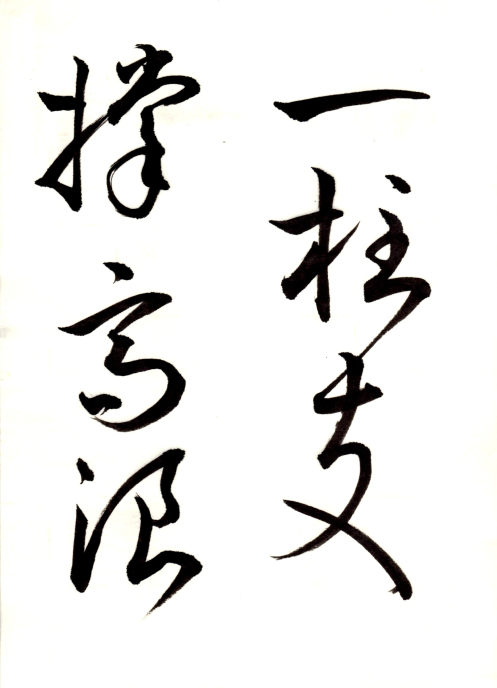 一柱支
撑高浪